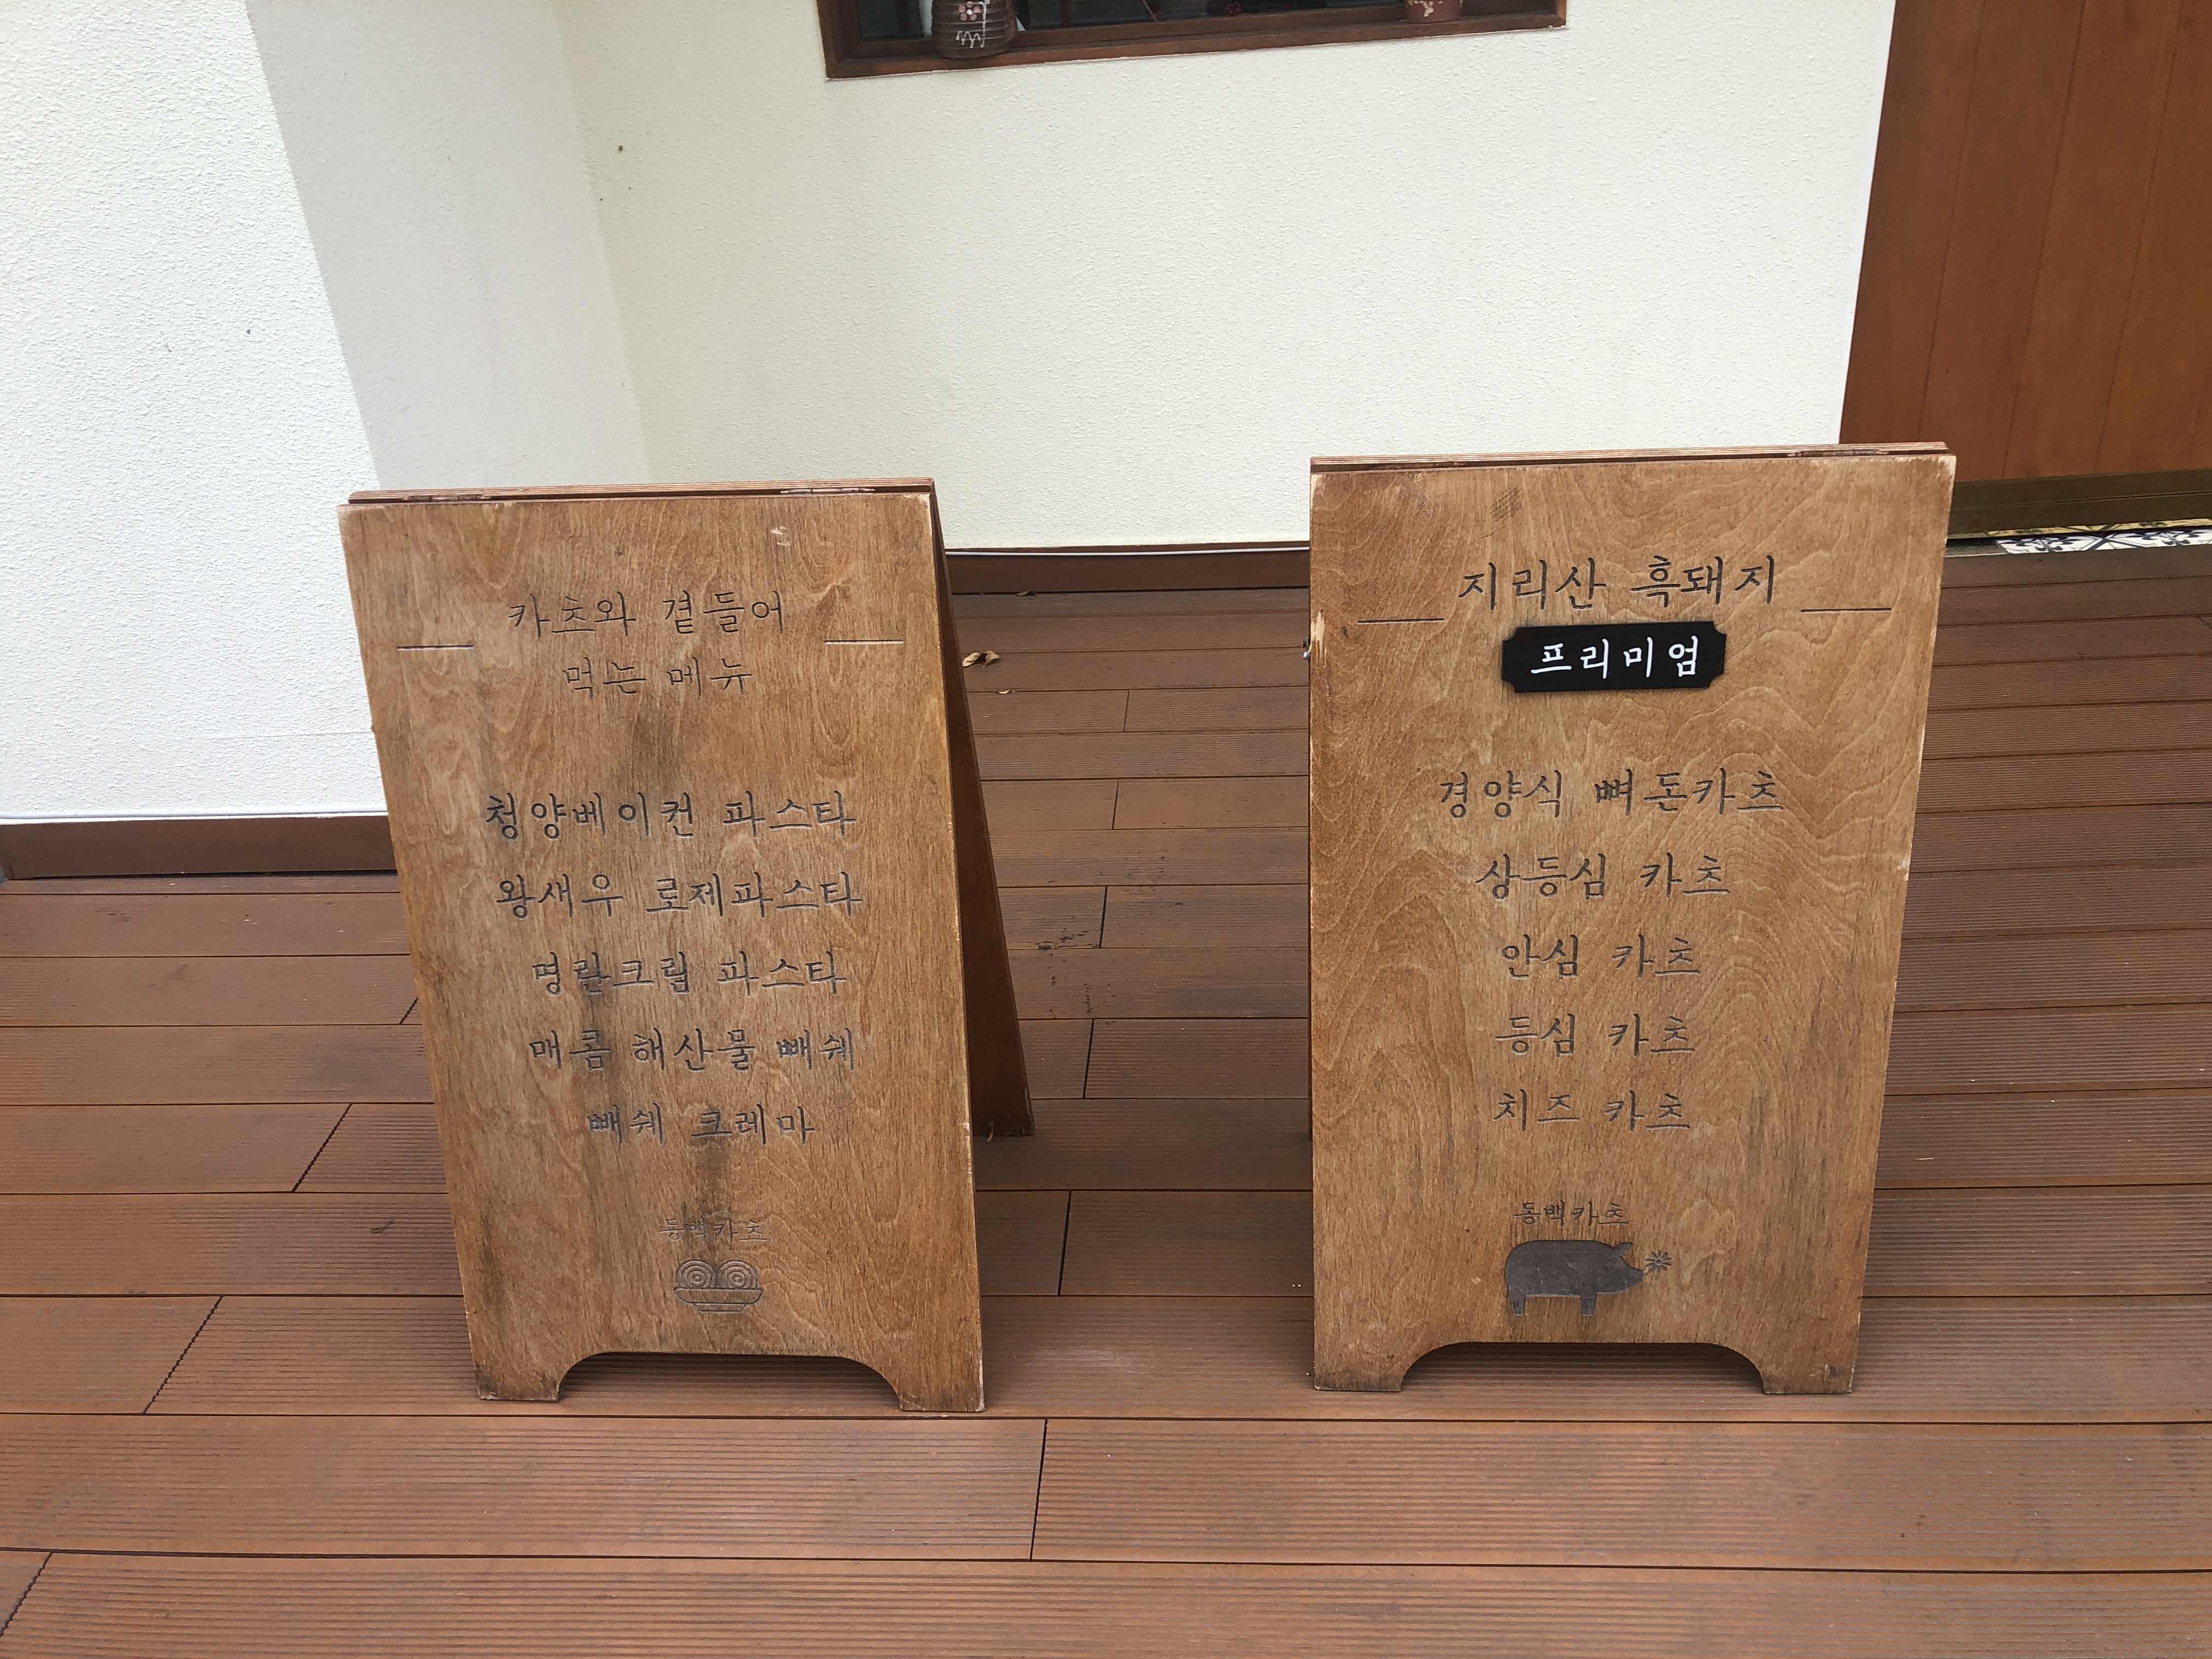 카츠와 곁들어
먹는 메뉴
청양베이컨 파스타
왕새우 로제파스타
명란크림 파스타
매콤 해산물 빼쉐
빼쉐 크레마
동백카츠
지리산 흑돼지
프리미엄
경양식 뼈돈카츠
상등심 카츠
안심 카츠
등심 카츠
치즈 카츠
동백카츠